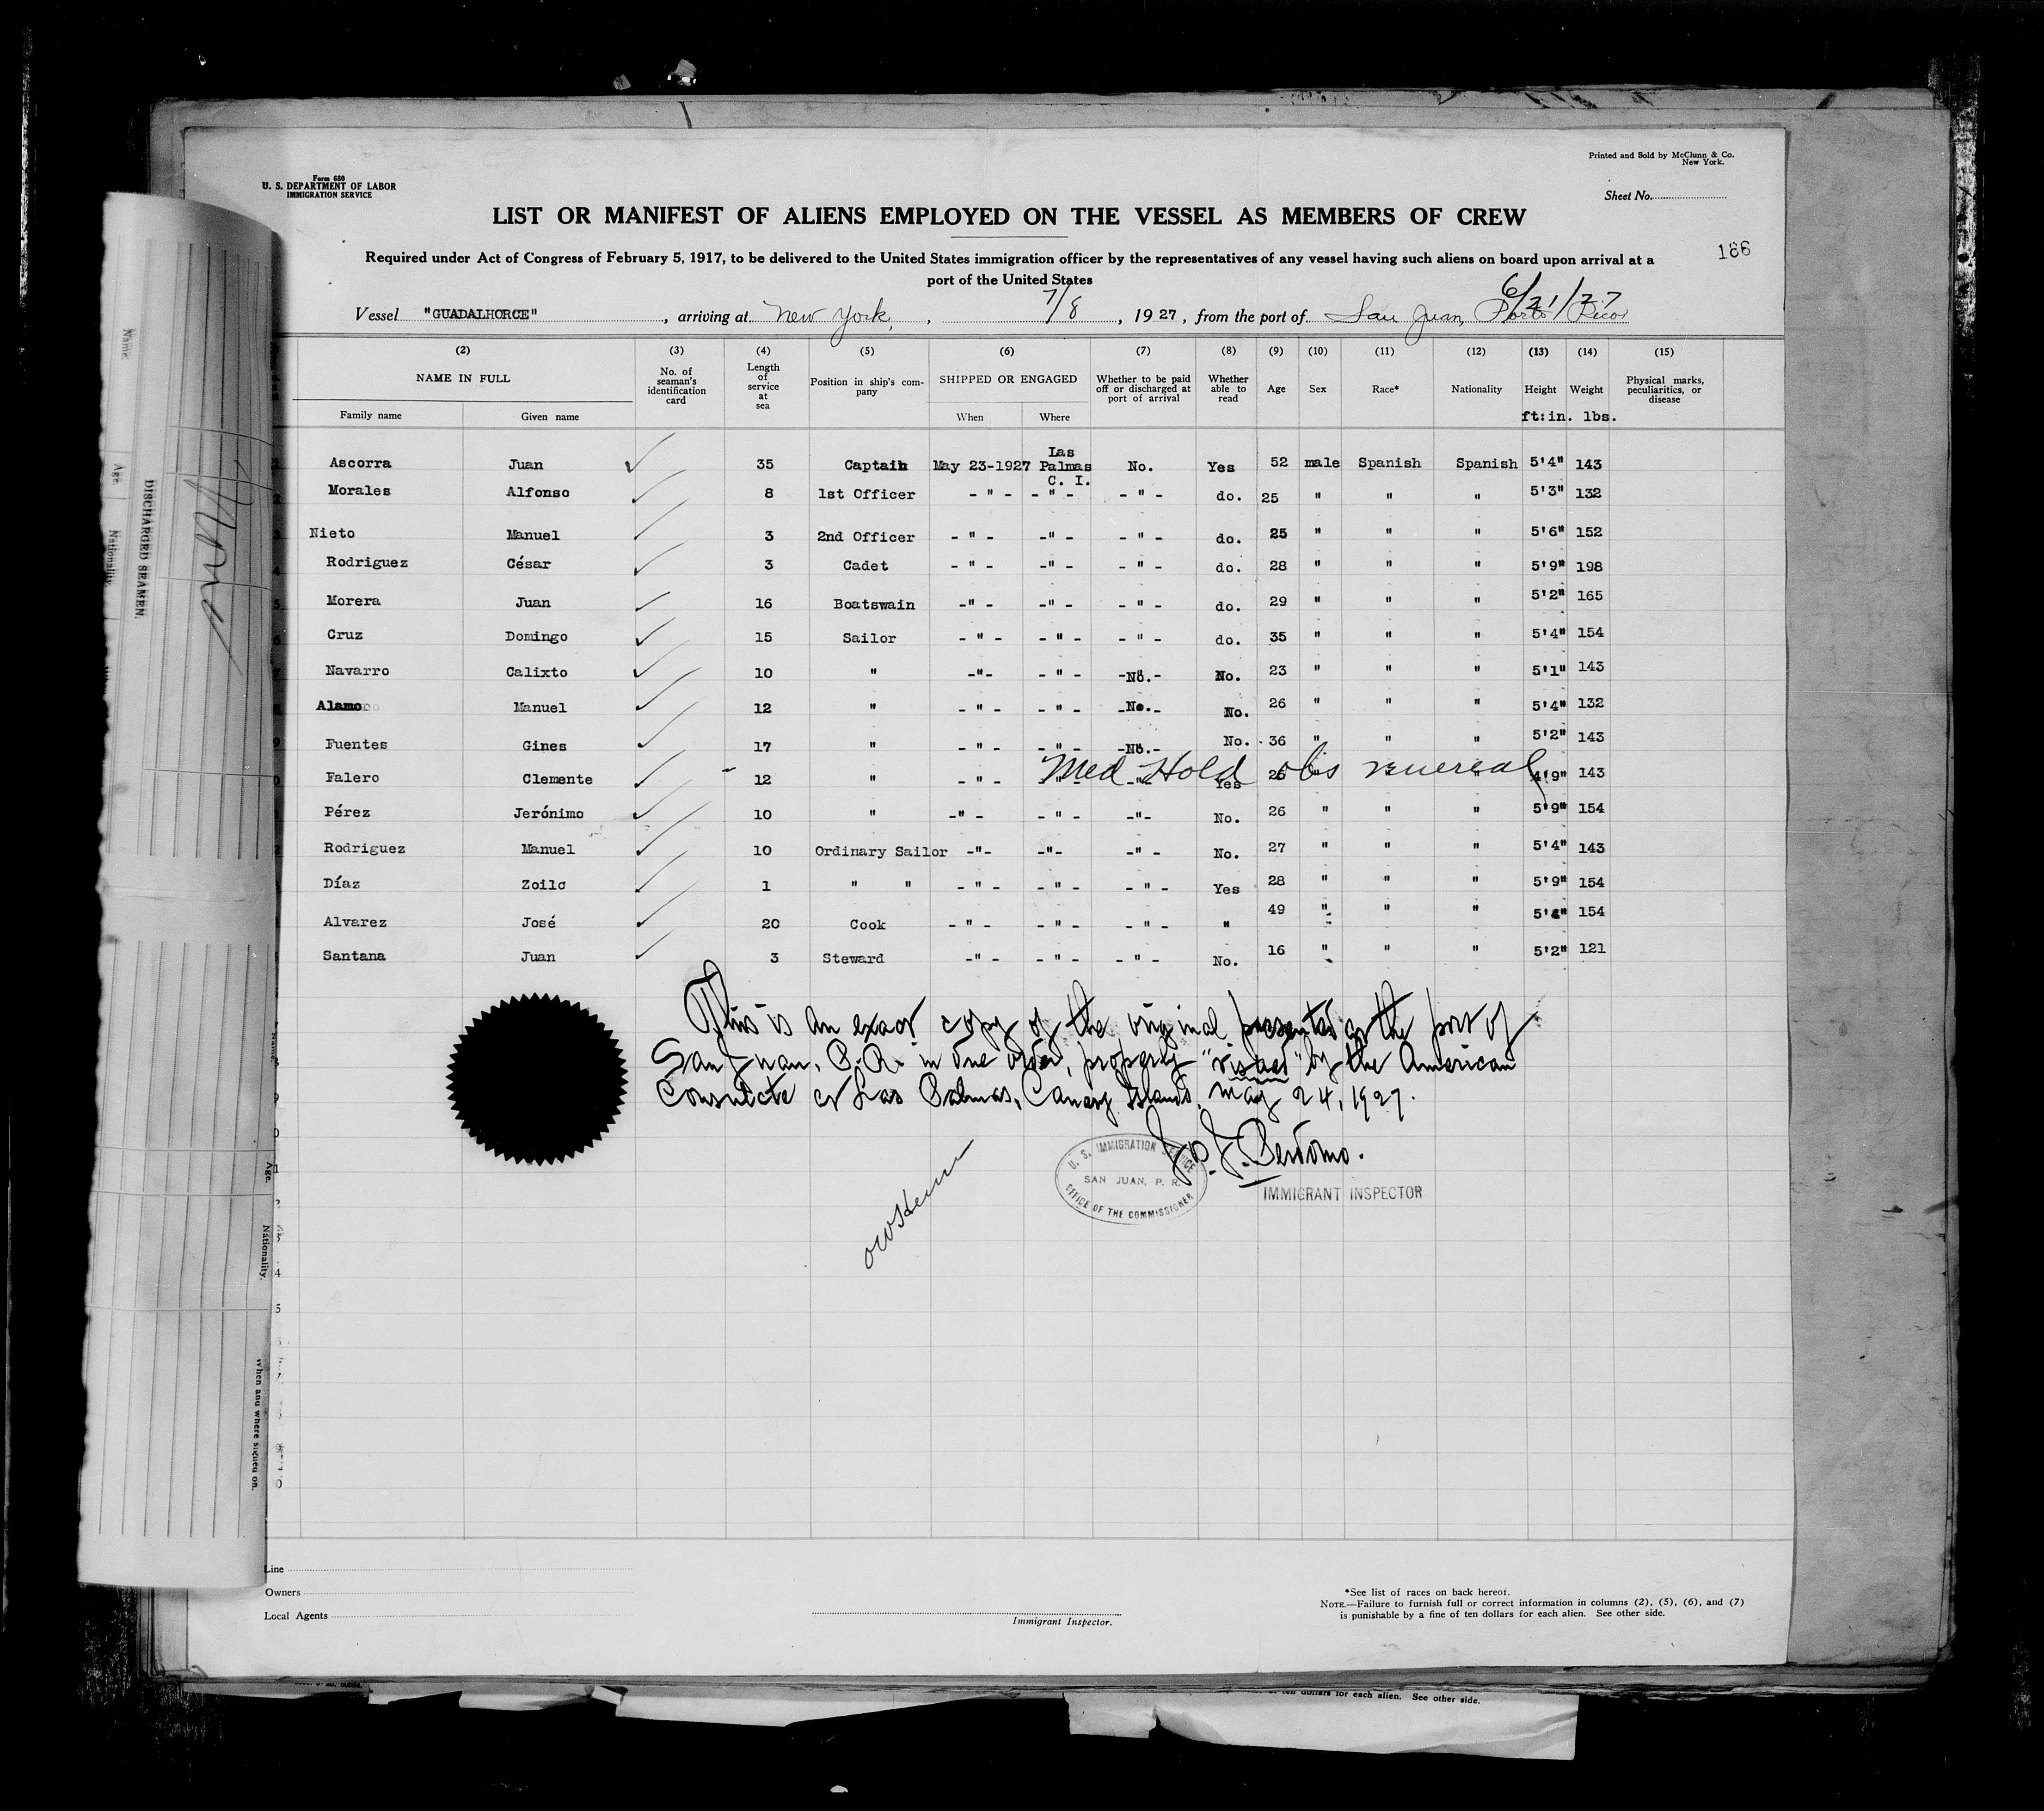 Printed and Sold by McClunn & Co.
New York.
Form 680
U. S. DEPARTMENT OF LABOR
IMMIGRATION SERVICE
Sheet No.
LIST OR MANIFEST OF ALIENS EMPLOYED ON THE VESSEL AS MEMBERS OF CREW
186
Required under Act of Congress of February 5, 1917, to be delivered to the United States immigration officer by the representatives of any vessel having such aliens on board upon arrival at a
port of the United States
6/21/27
Vessel "GUADALHORCE", arriving at New York, 7/8, 1927, from the port of San Juan, Porto Rico
(2) (3) (4) (5) (6) (7) (8) (9) (10) (11) (12) (13) (14) (15)
NAME IN FULL No. of seaman's identification card Length of service at sea Position in ship's company SHIPPED OR ENGAGED Whether to be paid off or discharged at port of arrival Whether able to read Age Sex Race* Nationality Height Weight Physical marks, peculiarities, or disease
Family name Given name When Where ft:in. lbs.
Ascorra Juan 35 Captain May 23-1927 Las Palmas C. I. No. Yes 52 male Spanish Spanish 5'4" 143
Morales Alfonso 8 1st Officer - " - - " - - " - do. 25 " " " 5'3" 132
Nieto Manuel 3 2nd Officer - " - -" - - " - do. 25 " " " 5'6" 152
Rodriguez César 3 Cadet - " - -" - - " - do. 28 " " " 5'9" 198
Morera Juan 16 Boatswain -" - -" - - " - do. 29 " " " 5'2" 165
Cruz Domingo 15 Sailor - " - - " - - " - do. 35 " " " 5'4" 154
Navarro Calixto 10 " -"- - " - -No.- No. 23 " " " 5'1" 143
Alamo Manuel 12 " - " - - " - -No.- No. 26 " " " 5'4" 132
Fuentes Gines 17 " - " - - " - -No.- No. 36 " " " 5'2" 143
Med Hold obs venereal
Falero Clemente 12 " - " - - " - -"- Yes 26 " " " 4'9" 143
Pérez Jerónimo 10 " -" - - " - -"- No. 26 " " " 5'9" 154
Rodriguez Manuel 10 Ordinary Sailor -"- -"- -" - No. 27 " " " 5'4" 143
Díaz Zoilo 1 " " - " - - " - - " - Yes 28 " " " 5'9" 154
Alvarez José 20 Cook - " - - " - - " - " 49 " " " 5'4" 154
Santana Juan 3 Steward -" - - " - - " - No. 16 " " " 5'2" 121
This is an exact copy of the original presented at the port of
San Juan, P.R. in due order, properly "visaed" by the American
Consulate at Las Palmas, Canary Islands, May 24, 1927.
J. Perdomo.
IMMIGRANT INSPECTOR
U. S. IMMIGRATION SERVICE
SAN JUAN, P. R.
OFFICE OF THE COMMISSIONER
Line
Owners
Local Agents
Immigrant Inspector.
*See list of races on back hereof.
NOTE.—Failure to furnish full or correct information in columns (2), (5), (6), and (7)
is punishable by a fine of ten dollars for each alien. See other side.
ten dollars for each alien. See other side.
DISCHARGED SEAMEN.
Name.
Age.
Nationality.
Age.
Nationality.
When and where signed on.